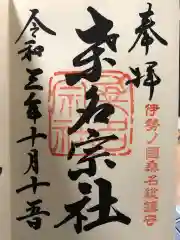 奉拝
伊勢ノ國桑名総鎮守
桑名宗社
令和三年十月十五日